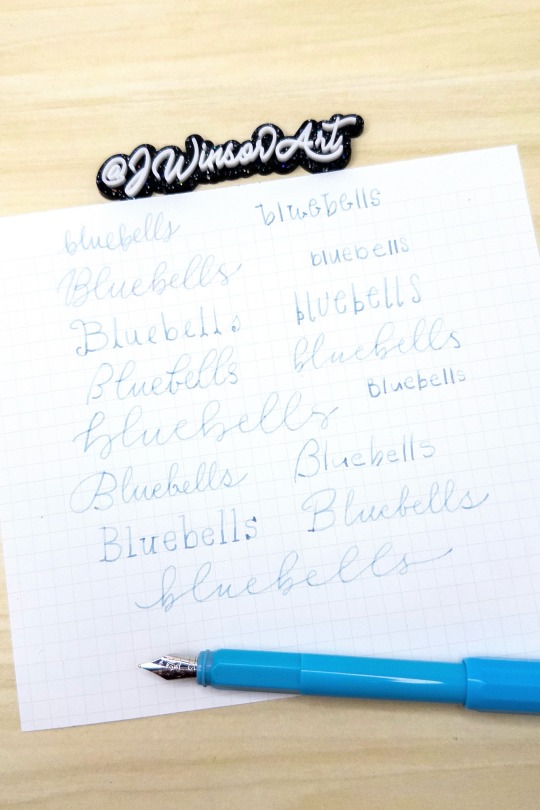 @JWinsorArt
bluebells bluebells
Bluebells bluebells
Bluebells bluebells
Bluebells bluebells
bluebells Bluebells
Bluebells Bluebells
Bluebells Bluebells
bluebells